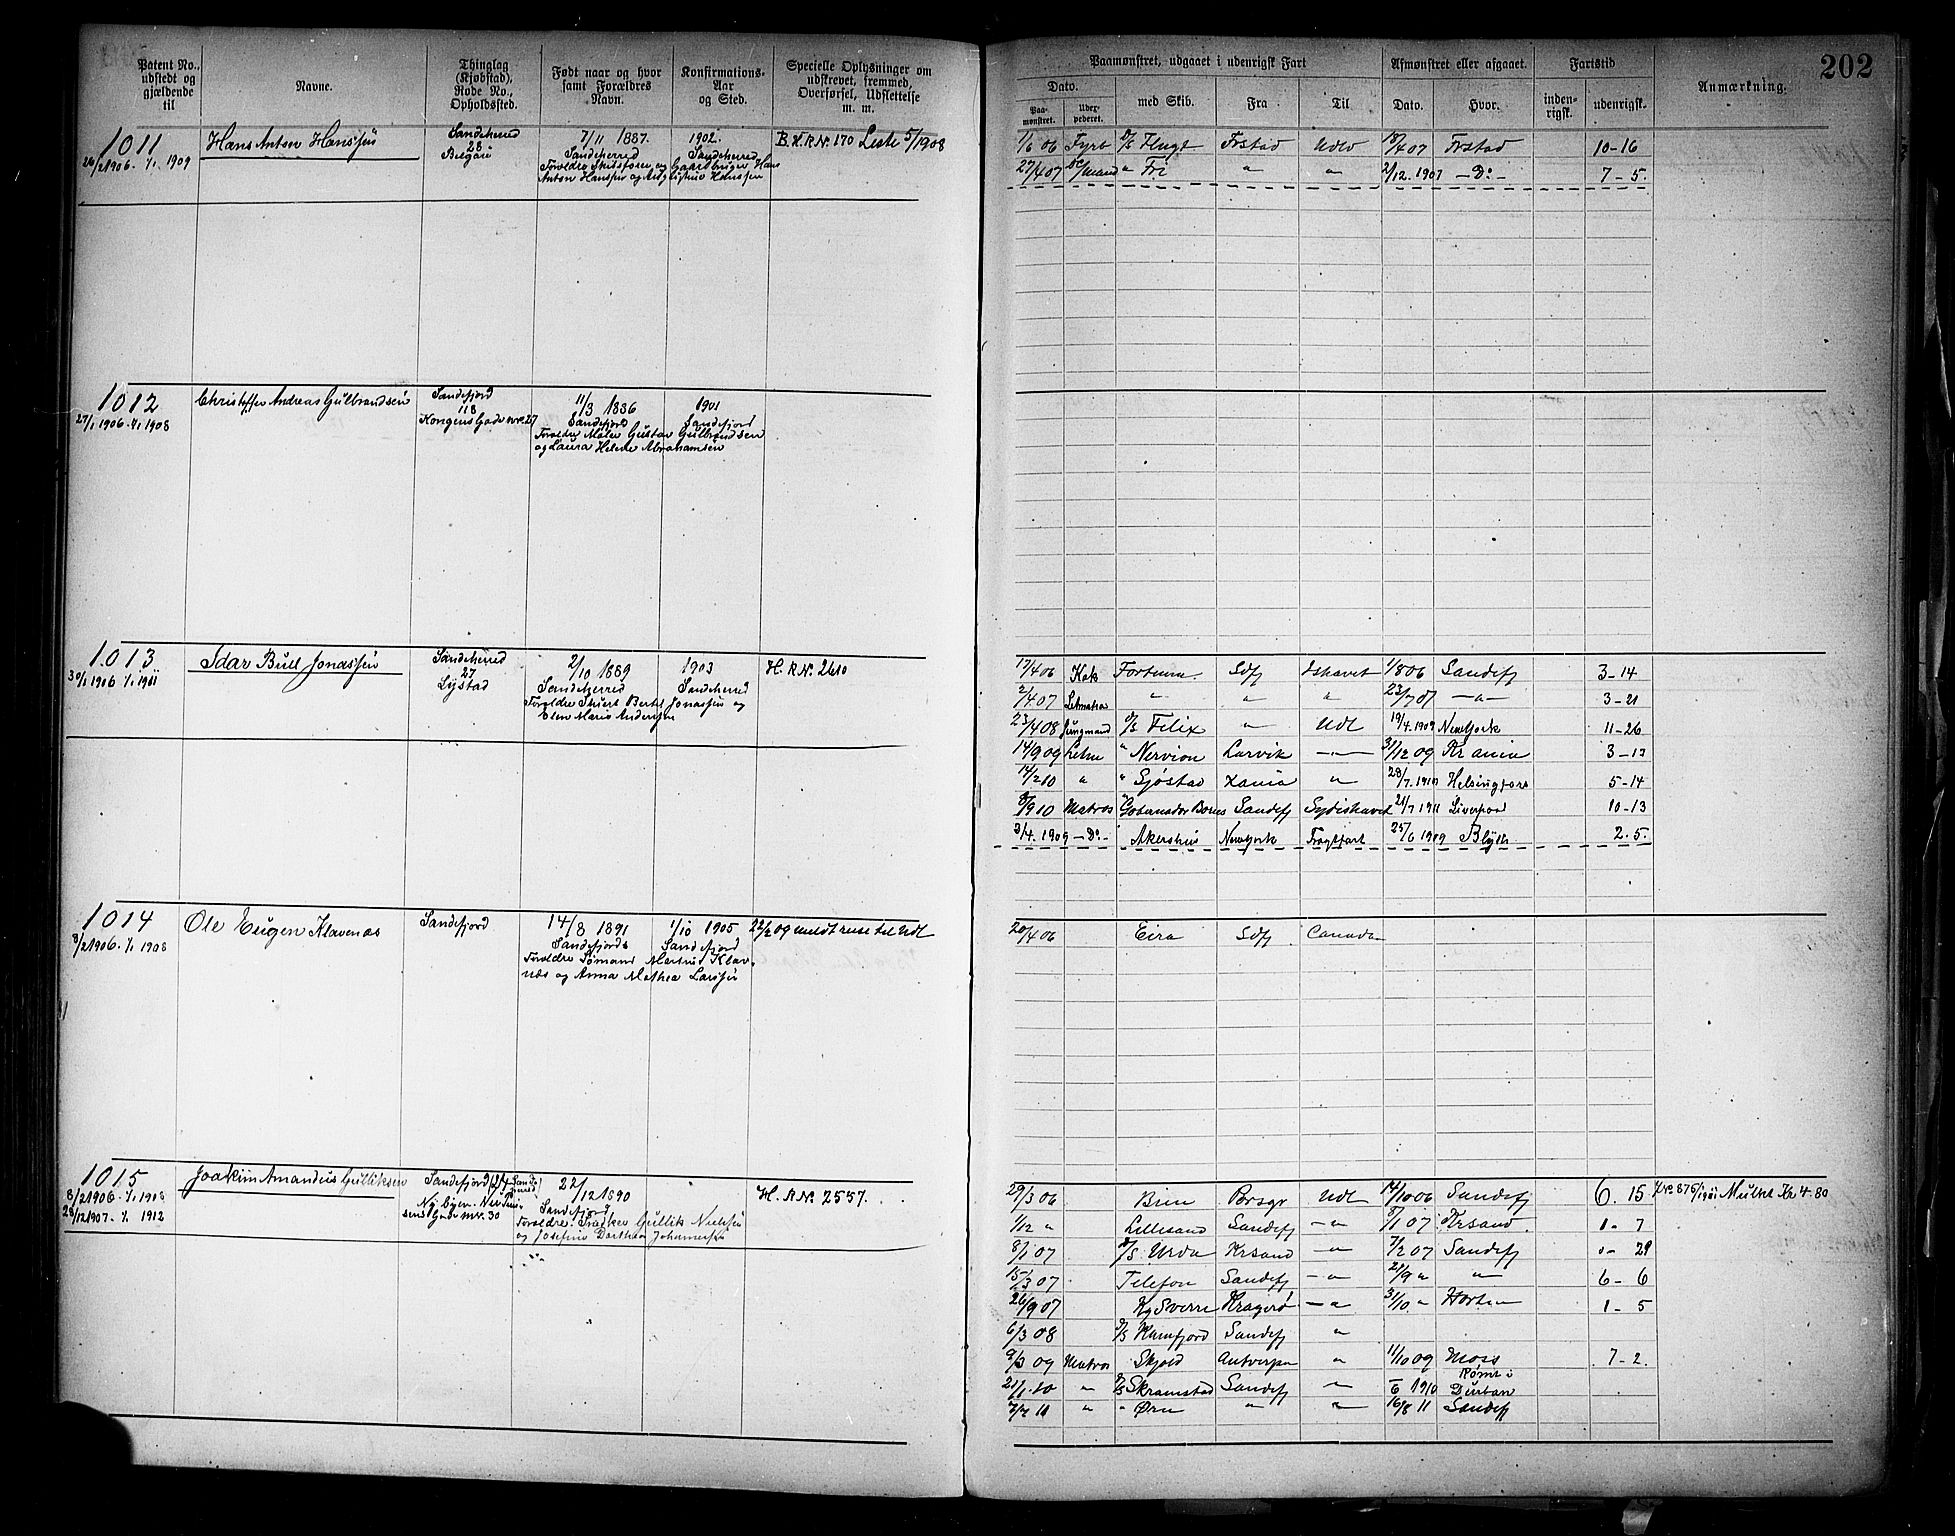 202
Patent No.,
udstedt og
gjældende
til
Navne.
Thinglag
(Kjøbstad),
Rode No.,
Opholdssted.
Født naar og hvor
samt Forældres
Navn.
Konfirmations-
Aar
og Sted.
Specielle Oplysninger om
udskrevet, fremmed,
Overførsel, Udslettelse
m. m.
Paamønstret, udgaaet i udenrigsk Fart
Dato.
Paa-
mønstret.
med Skib.
Fra
Til
Afmønstret eller afgaaet.
Dato.
Hvor.
Fartstid
inden-
rigsk.
udenrigsk.
Anmærkning.
1011
26/2 1906 - 1/1 1909
Hans Anton Hanssen
Sandeherred
28
7/11 1887.
Sandeherred
1902.
Sandeherred
B. H.R.No. 170 Leste 5/1908
1/6 06 Fyrb D/S Fluge Frstad Udl 18/4 07 Frstad 10-16
27/4 07 " Fri " " 2/12. 1907 - Do - 7-5.
1012
27/1 1906 - 1/1 1908
Christoffer Andreas Gulbrandsen
Sandefjord
118
Kongens Gade nr. 27
11/3 1886
Sandefjord
Forældre Maler Gustav Gulbrandsen
og Laura Helene Abrahamsen
1901
Sandefjord
1013
30/1 1906 1/1 1911
Idar Bull Jonassen
Sandeherred
27
Lystad
2/10 1889
Sandeherred
Forældre Stuert Bertel Jonassen og
Elen Marie Andersen
1903
Sandeherred
H. R.No. 2610
17/4 06 Kok Fortuna Sdfj Ishavet 1/8 06 Sandefj 3-14
2/4 07 Letmatros " " " 23/7 07 - " - 3-21
23/4 08 Jungmand D/S Felix " Udl 19/4. 1909 NewYork 11-26
14/9 09 Letm " Nervion Larvik - " 31/12 09 Krania 3-17
14/2 10 " " Sjøstad Xania " 28/7. 1910 Helsingfors 5-14
8/9 10 Matros " Gobernador Bories Sandefj Sydishavet 21/7 1911 Liverpool 10-13
3/4. 1909 - Do - Akershus NewYork Fragtfart 25/6 1909 Blyth 2.5.
1014
8/2 1906 - 1/1 1908
Ole Eugen Klavenæs
Sandefjord
14/8 1891
Sandefjord
Forældre Sømand Martin Klav-
næs og Anna Mathea Larssen
1/10 1905
Sandefjord
22/2 09 meldt reise til Udl
20/4 06 Eira Sdfj Canada
1015
8/2 1906 - 1/1 1908
28/12 1907 - 1/1 1912
Joakim Amandus Gulliksen
Sandefjord
22/12 1890
Sandefjord
og Josefine Dorthea Johannessen
H. R.No. 2557.
29/3 06 Brin Brsgr Udl 14/10 06 Sandefj 6. 15
1/12 " Lillesand Sandefj - " 8/1 07 Krsand. 1-7
8/1 07 D/S Urda Krsand - " 7/2 07 Sandefj 0-29
15/3 07 Telefon Sandefj - " 21/9 " " 6-6
26/9 07 Kg Sverre Kragerø - " 31/10 " Horten 1-5
6/3 08 D/S Kamfjord Sandefj "
9/3 09 Matros Skjold Antverpen " 11/10 09 Moss 7-2.
21/1 10 " D/S Skramstad Sandefj " /6 1910 Rømt i
Durban
7/7 11 " " Ørn " " 16/8 11 Sandefj